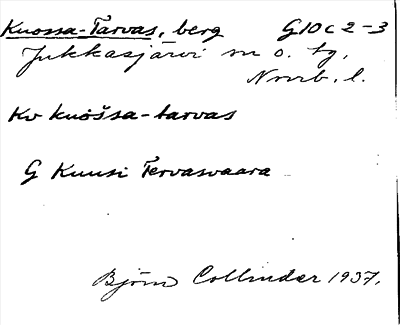 Kuossa-Tarvas, berg G10c2-3
Jukkasjärvi sn o. tg,
Nrrb. l.
Kv kuošša-tarvas
G Kuusi Tervasvaara
Björn Collinder 1937.